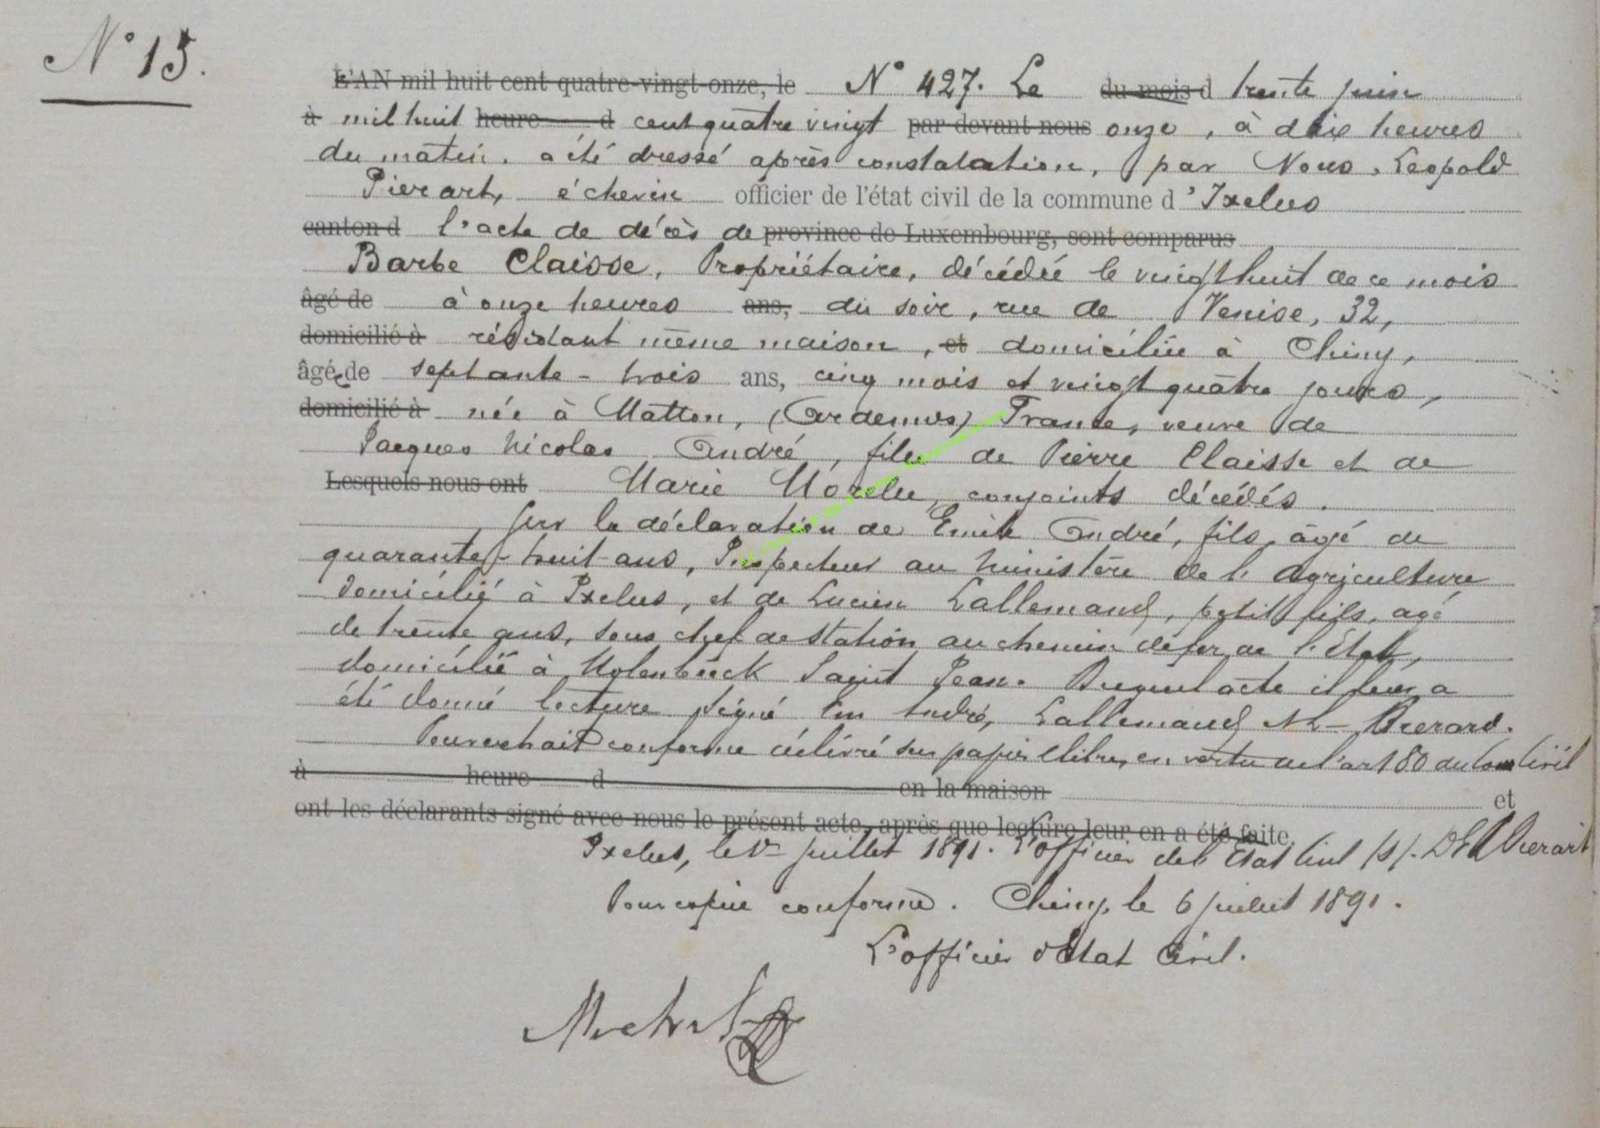 N° 15.
L'AN mil huit cent quatre-vingt-onze, le N° 427. Le du mois d trente juin
à mil huit heure d cent quatre vingt par devant nous onze, à dix heures
du matin, a été dressé après constatation, par Nous, Léopold
Pierart, échevin officier de l'état civil de la commune d'Ixelles
canton d l'acte de décès de province de Luxembourg, sont comparus
Barbe Claisse, Propriétaire, décédée le vingt huit de ce mois
âgé de à onze heures ans, du soir, rue de Venise, 32,
domicilié à résidant même maison, et domiciliée à Chiny,
âgée de septante-trois ans, cinq mois et vingt quatre jours,
domicilié à née à Matton, (Ardennes) France, veuve de
Jacques Nicolas André, fille de Pierre Claisse et de
Lesquels nous ont Marie conjoints décédés.
Sur la déclaration de Emile André, fils, âgé de
quarante-huit ans, Inspecteur au Ministère de l'agriculture,
domicilié à Ixelles, et de Lucien Lallemand, petit fils, agé
de trente ans, sous chef de station au chemin de fer de l'Etat,
domicilié à Molenbeeck Saint Jean. Duquel acte il leur a
été donné lecture signé Em André, Lallemand
Pour extrait conforme délivré sur papier libre, en vertu de l'art 80 du Code Civil
à heure d en la maison et
ont les déclarants signé avec nous le présent acte, après que lecture leur en a été faite.
Ixelles, le 1er juillet 1891. L'officier de l'Etat Civil (s). Pierart
Pour copie conforme. Chiny, le 6 juillet 1891.
L'officier d'Etat Civil.